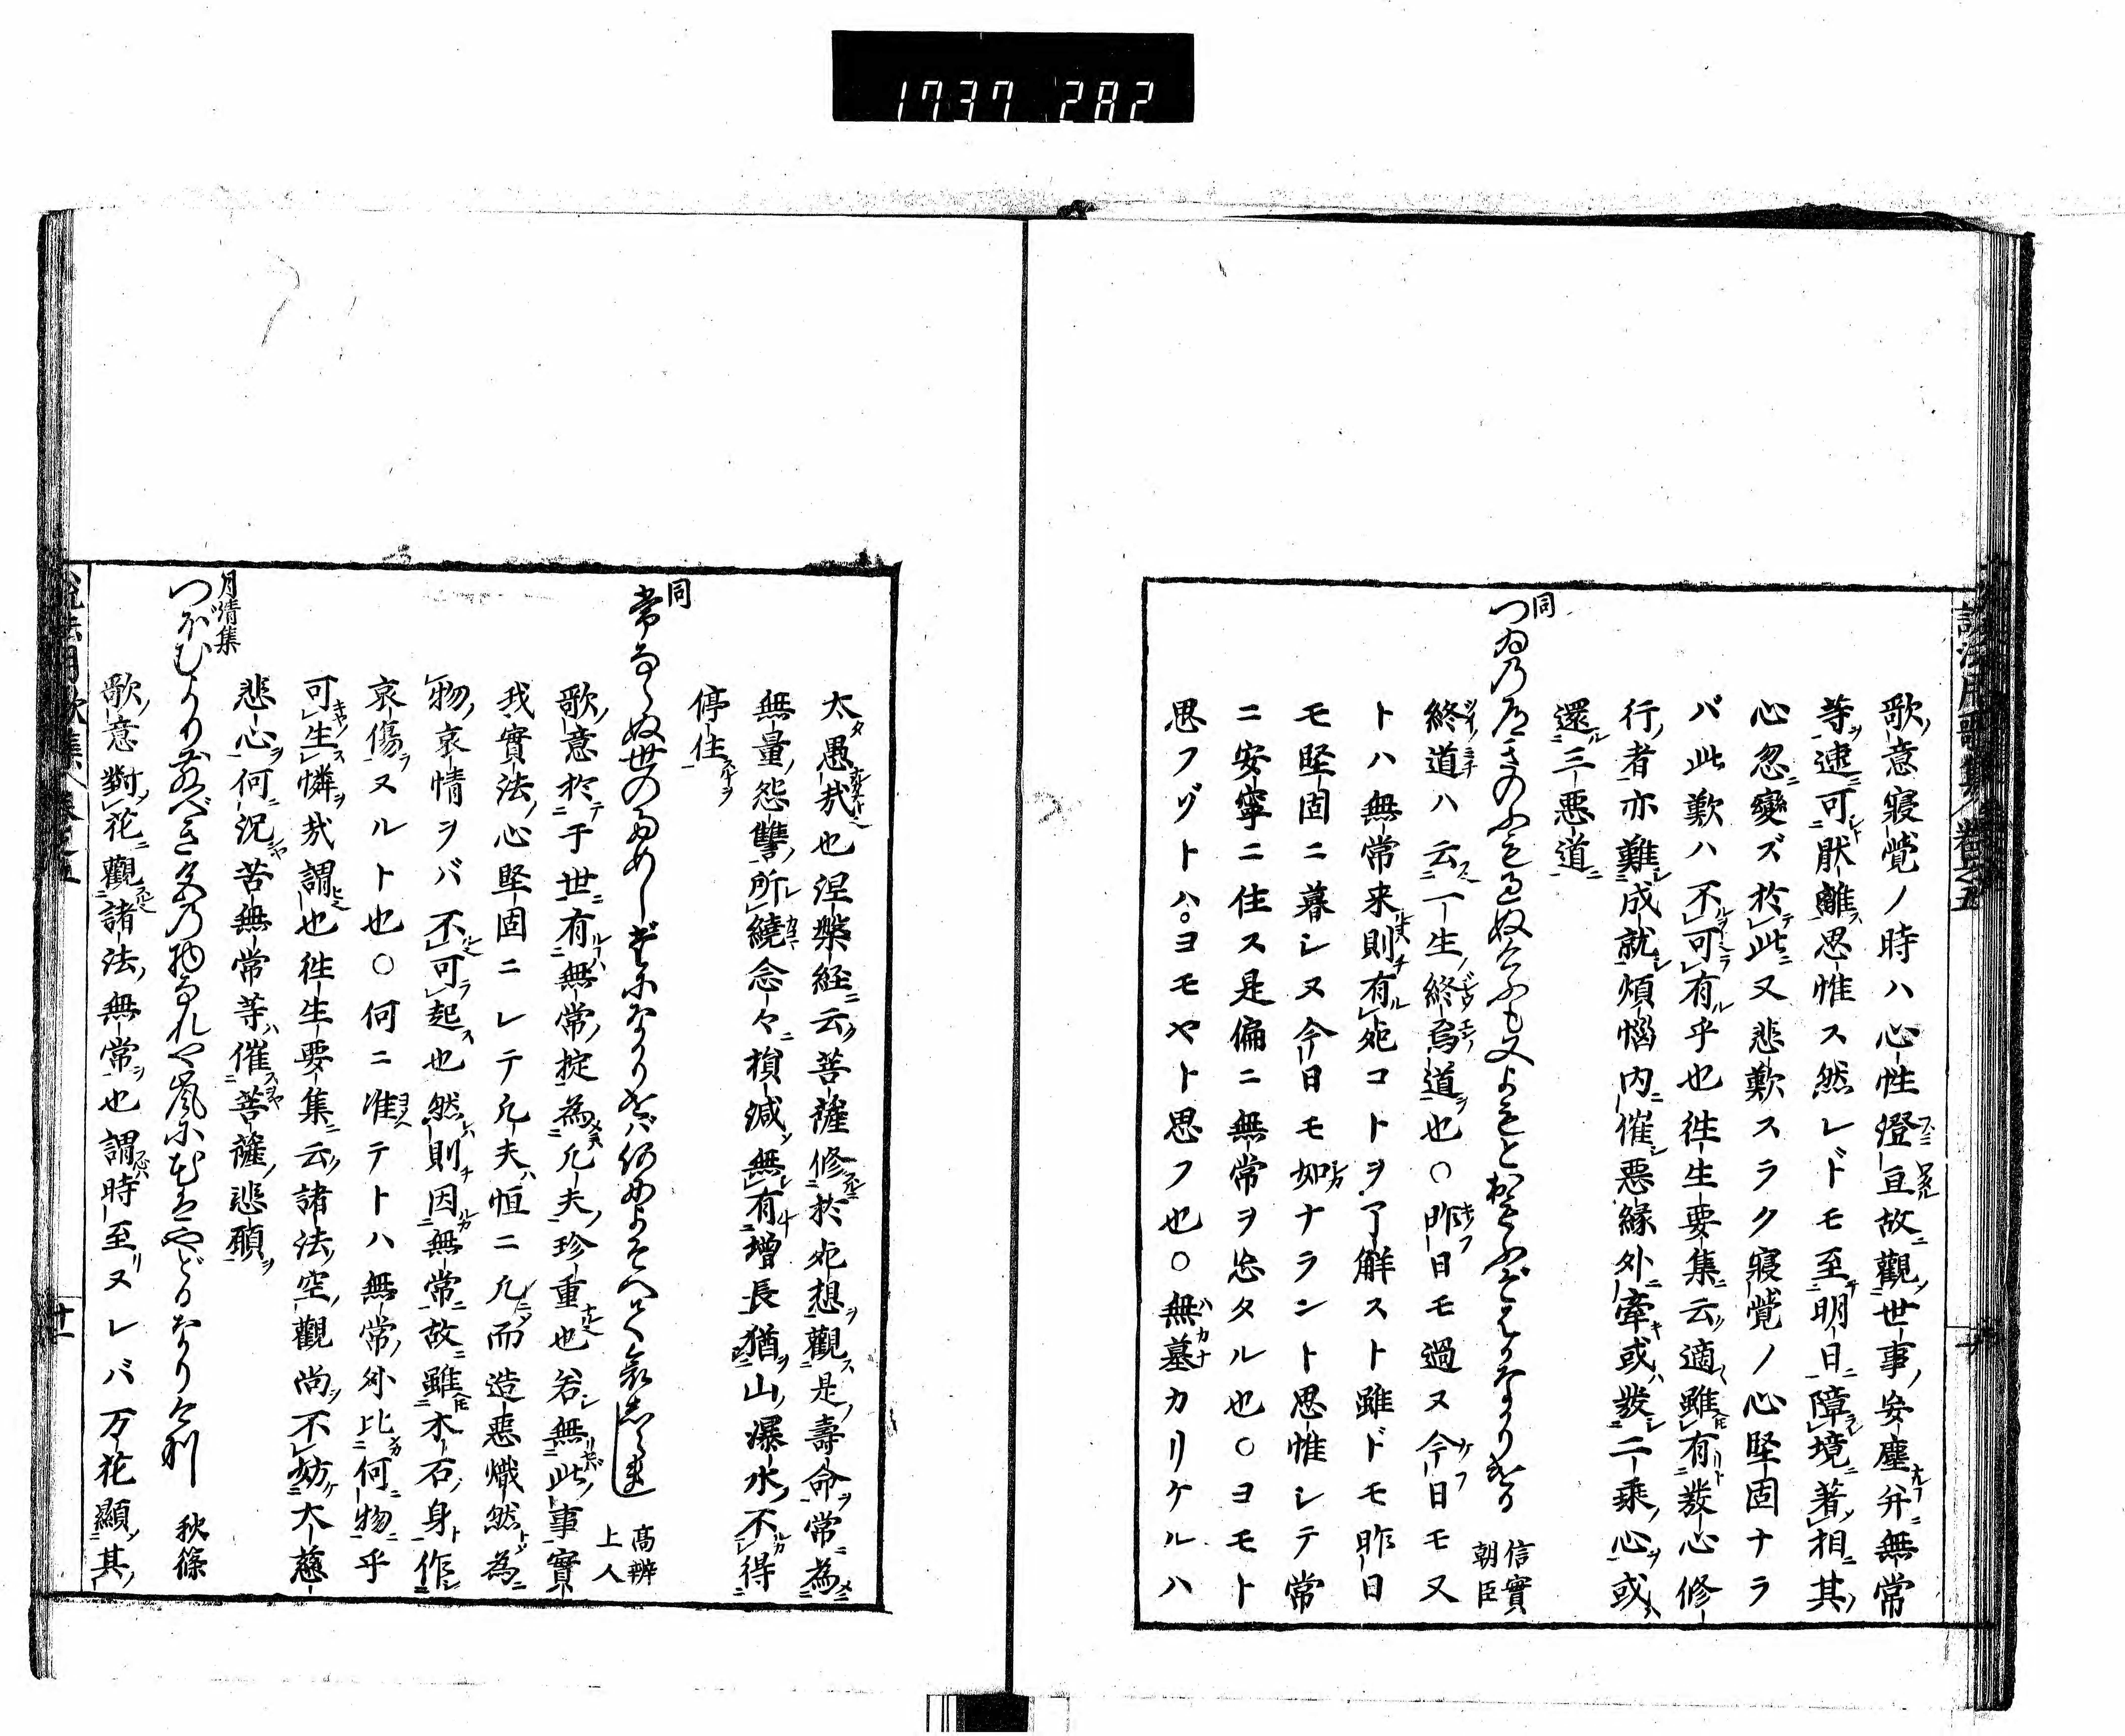 1737 282
説法用歌集 巻之五
歌ノ意寝覚ノ時ハ心性澄亘故觀世事ノ安塵弁無常
等ヲ逮可猒離ス思惟ス然レドモ至明日ニ障境ニ著相ニ其ノ
心忽ニ變ズ於テ此ニ又悲歎スラク寝覚ノ心堅固ナラ
バ此歎ハ不可有ル乎也往生要集ニ云適雖有發心修
行ノ者亦難成就シ煩悩内ニ催シ悪縁外ニ牽キ或ハ發二乗ノ心ヲ或ハ
還ル三悪道ニ
同
つゐの道きのふは過ぬけふも又よもとおもふぞはかなかりける
信實
朝臣
終道ハ云一生ノ終焉道ヲ也○昨日モ過ヌ今日モ又
トハ無常来則チ有ル死コトヲ了解スト雖ドモ昨日
モ堅固ニ暮シヌ今日モ如ナラント思惟シテ常
ニ安寧ニ住ス是偏ニ無常ヲ忘タル也○ヨモト
思フゾトハ。ヨモヤト思フ也○無墓カリケルハ
太愚哉也涅槃経ニ云菩薩修於死想ヲ觀ス是ノ壽命ヲ常ニ為ニ
無量ノ怨讐ノ所レ繞念々ニ損減シ無有増長猶山ノ瀑水ノ不得
停住スルヲ
同
常ならぬ世のためしだになかりせば何によそへて哀しらまし
高辨
上人
歌ノ意於テ于世ニ有ルハ無常ノ掟為凡夫ノ珍重也若シ無此ノ事實
我實法ノ心堅固ニレテ凡夫ハ恒ニ凡而造悪熾然トシ為ニ
物ノ哀情ヲバ不可起ス也然則チ因無常ニ故ニ雖木石ノ身ト作
哀傷ヌルト也○何ニ准テトハ無常ノ外比何物ニ乎
可生憐ヲ哉謂也往生要集ニ云諸法ノ空觀尚シ不妨ケ大慈
悲心ヲ何ニ況苦無常等ハ催菩薩ノ悲願ヲ
月清集
つぼむより散べき色の物なれや嵐にむせぶやどるなりけり
秋篠
歌ノ意對シ花ニ觀諸法ノ無常ヲ也謂時至リヌレバ万花顯シ其ノ
説法用歌集 巻之五
十一